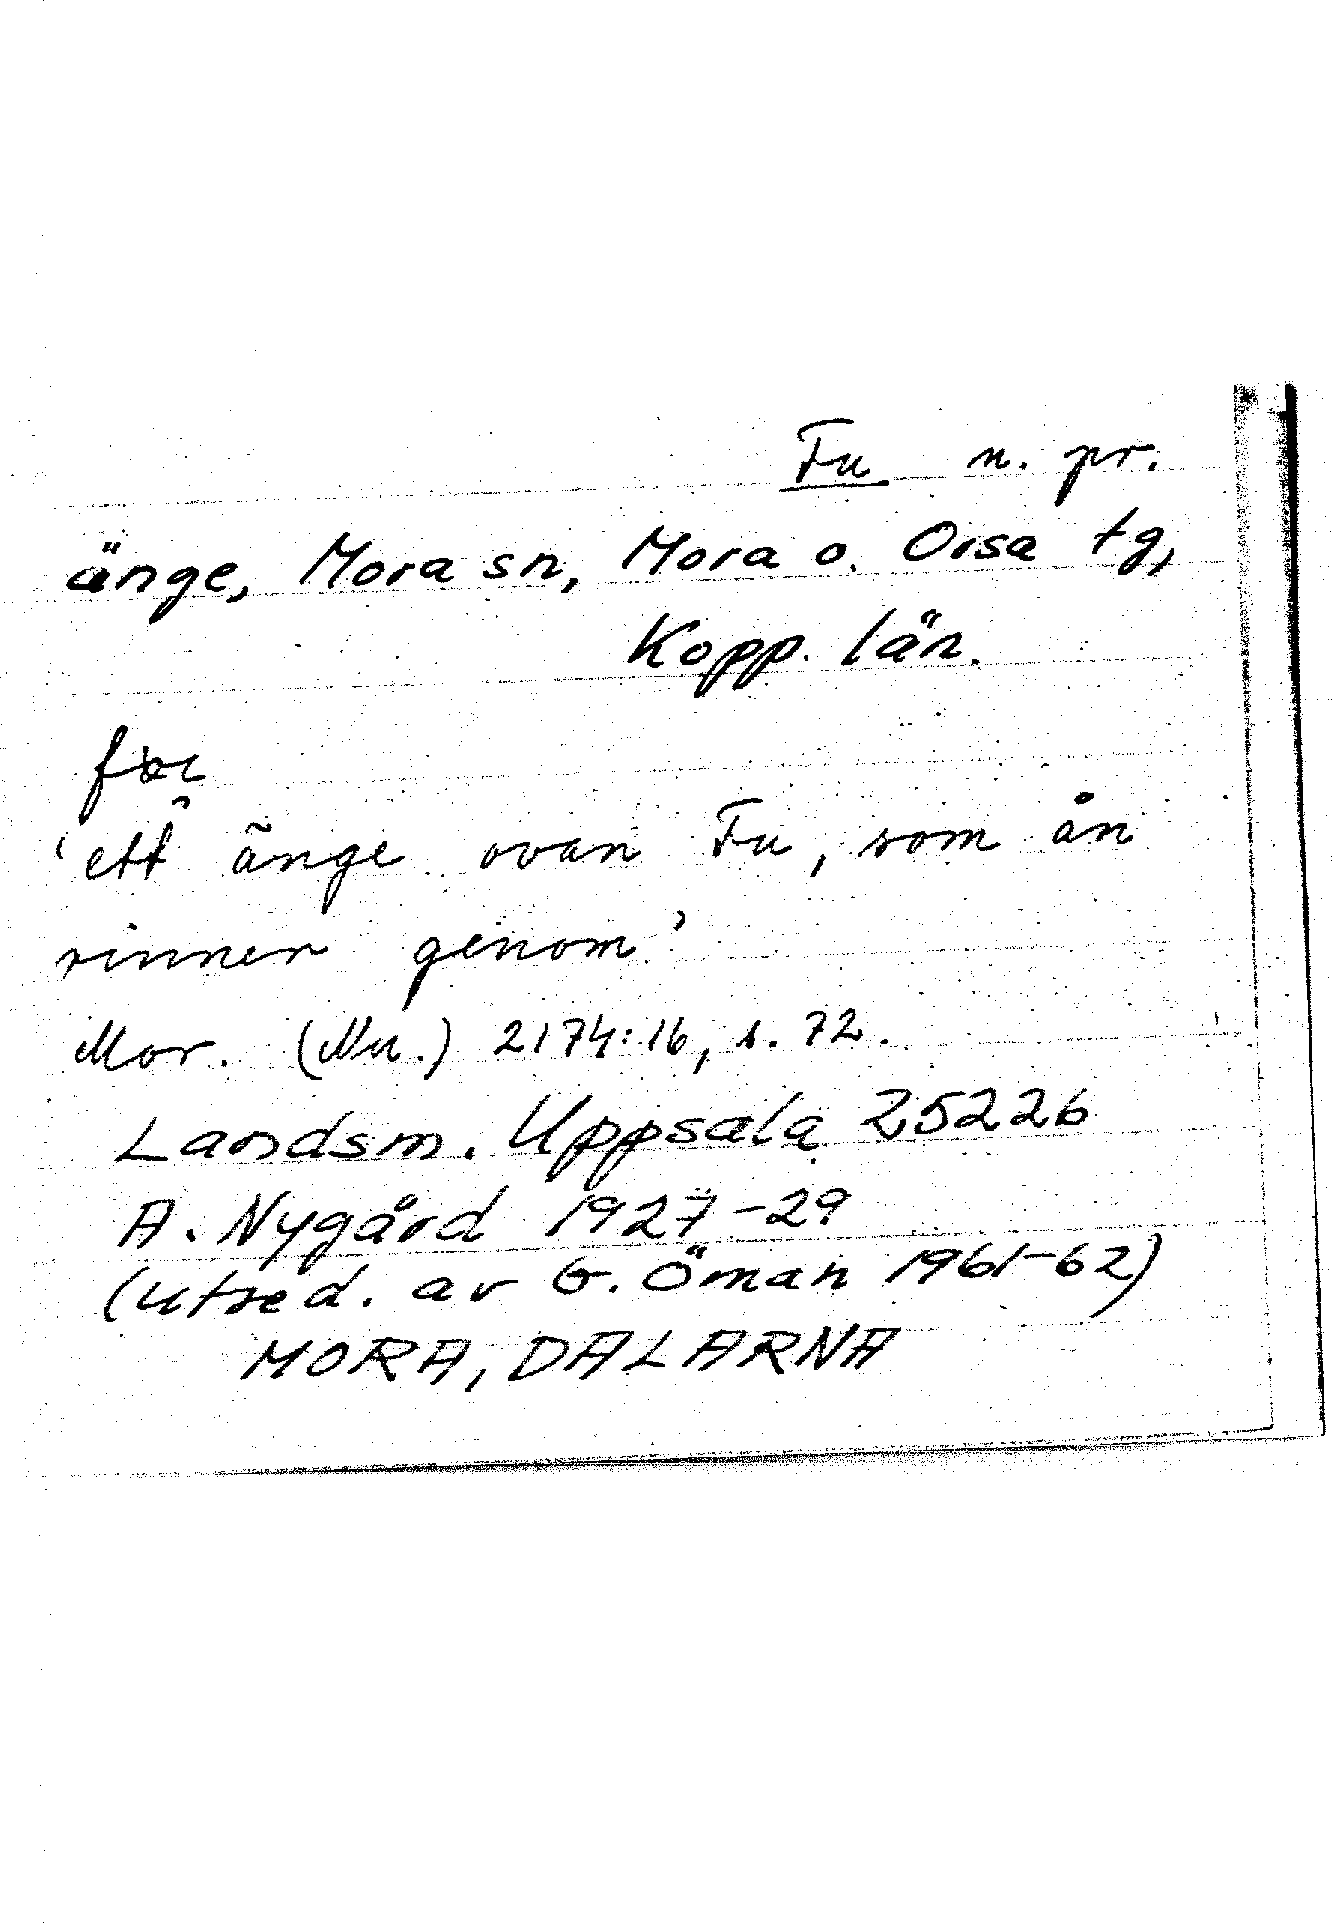 Fu n. pr.
änge, Mora sn, Mora o. Orsa tg,
Kopp. län.
'ett änge ovan Fu, som ån
rinner genom'
Mor. (Nu.) 2174:16, s. 72.
Landsm. Uppsala 25226
A. Nygård 1927-29
(utred. av G. Öman 1961-62)
MORA, DALARNA